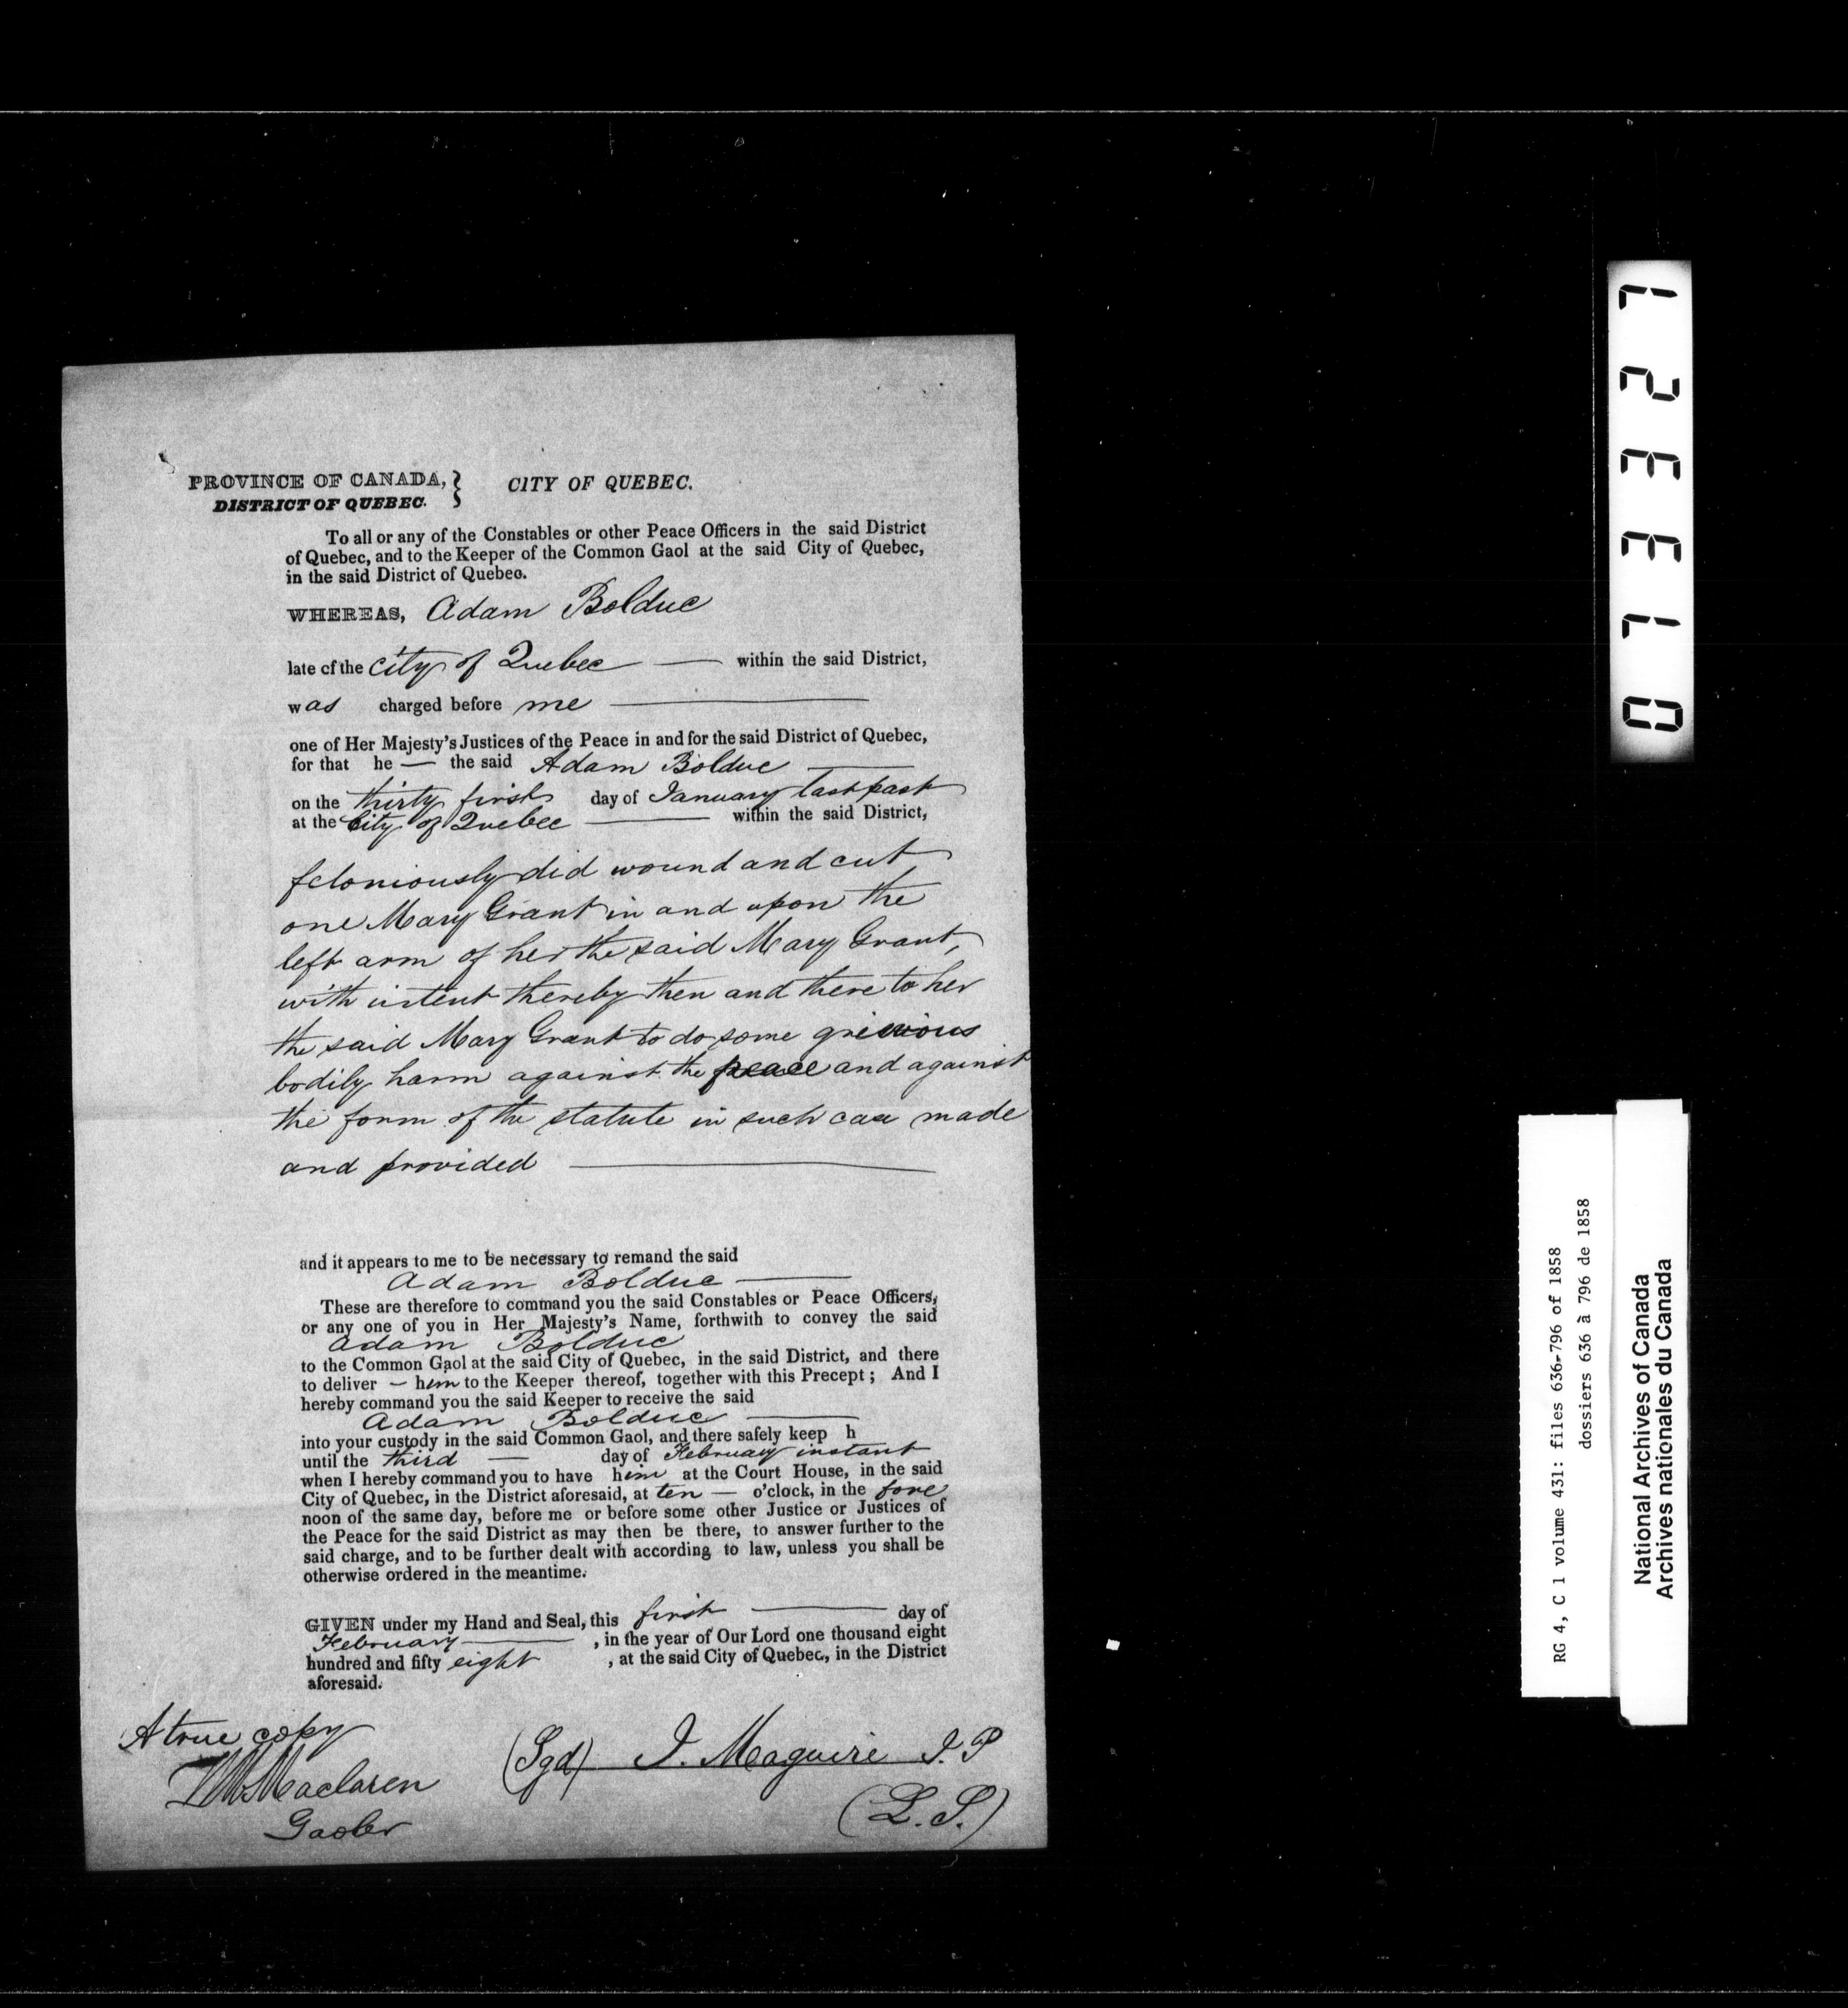 PROVINCE OF CANADA, } CITY OF QUEBEC.
DISTRICT OF QUEBEC.
To all or any of the Constables or other Peace Officers in the said District
of Quebec, and to the Keeper of the Common Gaol at the said City of Quebec,
in the said District of Quebec.
WHEREAS, Adam Bolduc
late of the City of Quebec — within the said District,
was charged before me —
one of Her Majesty's Justices of the Peace in and for the said District of Quebec,
for that he — the said Adam Bolduc —
on the thirty first day of January last past
at the City of Quebec — within the said District,
feloniously did wound and cut
one Mary Grant in and upon the
left arm of her the said Mary Grant,
with intent thereby then and there to her
the said Mary Grant to do some grievious
bodily harm against the peace and against
the form of the statute in such case made
and provided —
and it appears to me to be necessary to remand the said
Adam Bolduc —
These are therefore to command you the said Constables or Peace Officers,
or any one of you in Her Majesty's Name, forthwith to convey the said
Adam Bolduc
to the Common Gaol at the said City of Quebec, in the said District, and there
to deliver — him to the Keeper thereof, together with this Precept; And I
hereby command you the said Keeper to receive the said
Adam Bolduc —
into your custody in the said Common Gaol, and there safely keep h
until the third — day of February instant
when I hereby command you to have him at the Court House, in the said
City of Quebec, in the District aforesaid, at ten — o'clock, in the fore
noon of the same day, before me or before some other Justice or Justices of
the Peace for the said District as may then be there, to answer further to the
said charge, and to be further dealt with according to law, unless you shall be
otherwise ordered in the meantime.
GIVEN under my Hand and Seal, this first — day of
February — , in the year of Our Lord one thousand eight
hundred and fifty eight , at the said City of Quebec, in the District
aforesaid.
A true copy
(Sgd) J. Maguire J.P
Maclaren
(L.S.)
Gaoler
013321
RG 4, C 1 volume 431: files 636-796 of 1858
dossiers 636 à 796 de 1858
National Archives of Canada
Archives nationales du Canada